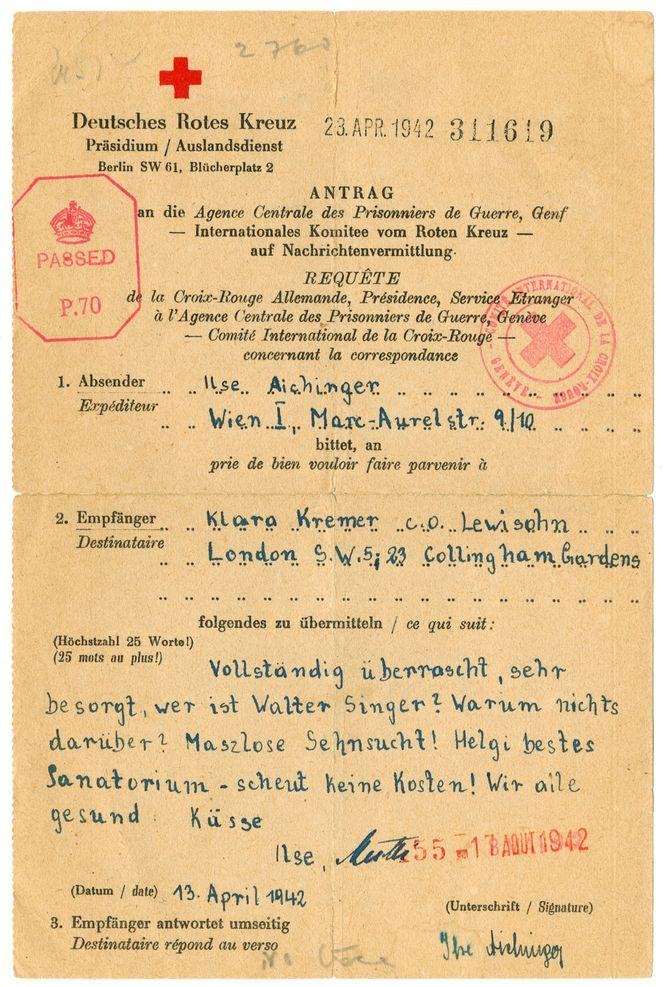 2760
Deutsches Rotes Kreuz
Präsidium / Auslandsdienst
Berlin SW 61, Blücherplatz 2
23. APR. 1942 311619
PASSED
P.70
ANTRAG
an die Agence Centrale des Prisonniers de Guerre, Genf
— Internationales Komitee vom Roten Kreuz —
auf Nachrichtenvermittlung.
REQUÊTE
de la Croix-Rouge Allemande, Présidence, Service Etranger
à l'Agence Centrale des Prisonniers de Guerre, Genève
— Comité International de la Croix-Rouge —
concernant la correspondance
COMITÉ INTERNATIONAL DE LA CROIX-ROUGE GENÈVE
1. Absender Ilse Aichinger
Expéditeur Wien I, Marc-Aurelstr. 9/10
bittet, an
prie de bien vouloir faire parvenir à
2. Empfänger Klara Kremer c.o. Lewisohn
Destinataire London S.W.5; 23 Collingham Gardens
folgendes zu übermitteln / ce qui suit:
(Höchstzahl 25 Worte!)
(25 mots au plus!)
Vollständig überrascht, sehr
besorgt, wer ist Walter Singer? Warum nichts
darüber? Maszlose Sehnsucht! Helgi bestes
Sanatorium - scheut keine Kosten! Wir alle
gesund Küsse
Ilse, Mutti 55 - 18 AOUT 1942
(Datum / date) 13. April 1942
(Unterschrift / Signature)
3. Empfänger antwortet umseitig
Destinataire répond au verso
Ilse Aichinger